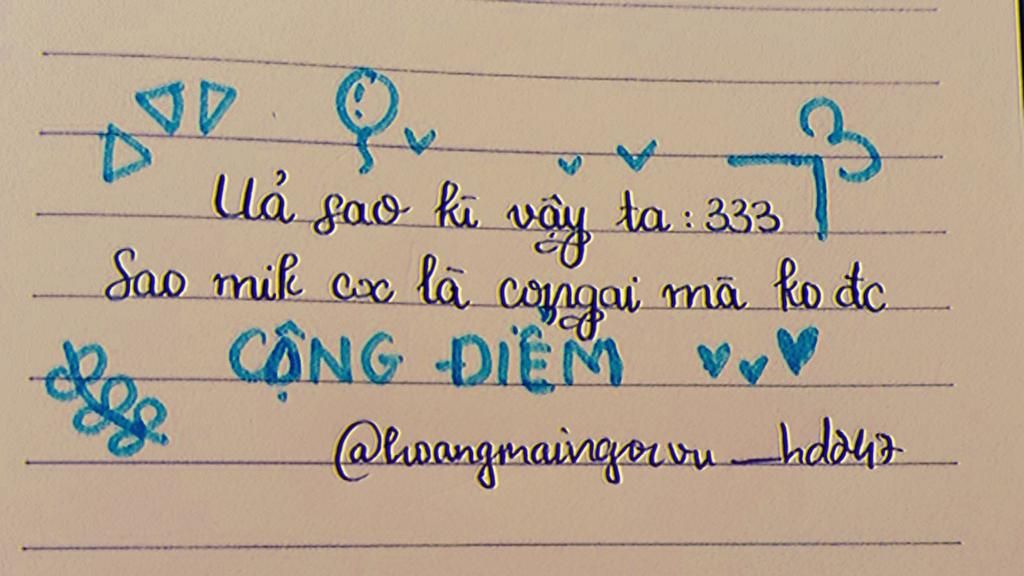 Uả sao kì vậy ta : 333
Sao mik cx là con gai mà ko đc
CỘNG ĐIỂM
@hoangmaingocvu_hd247